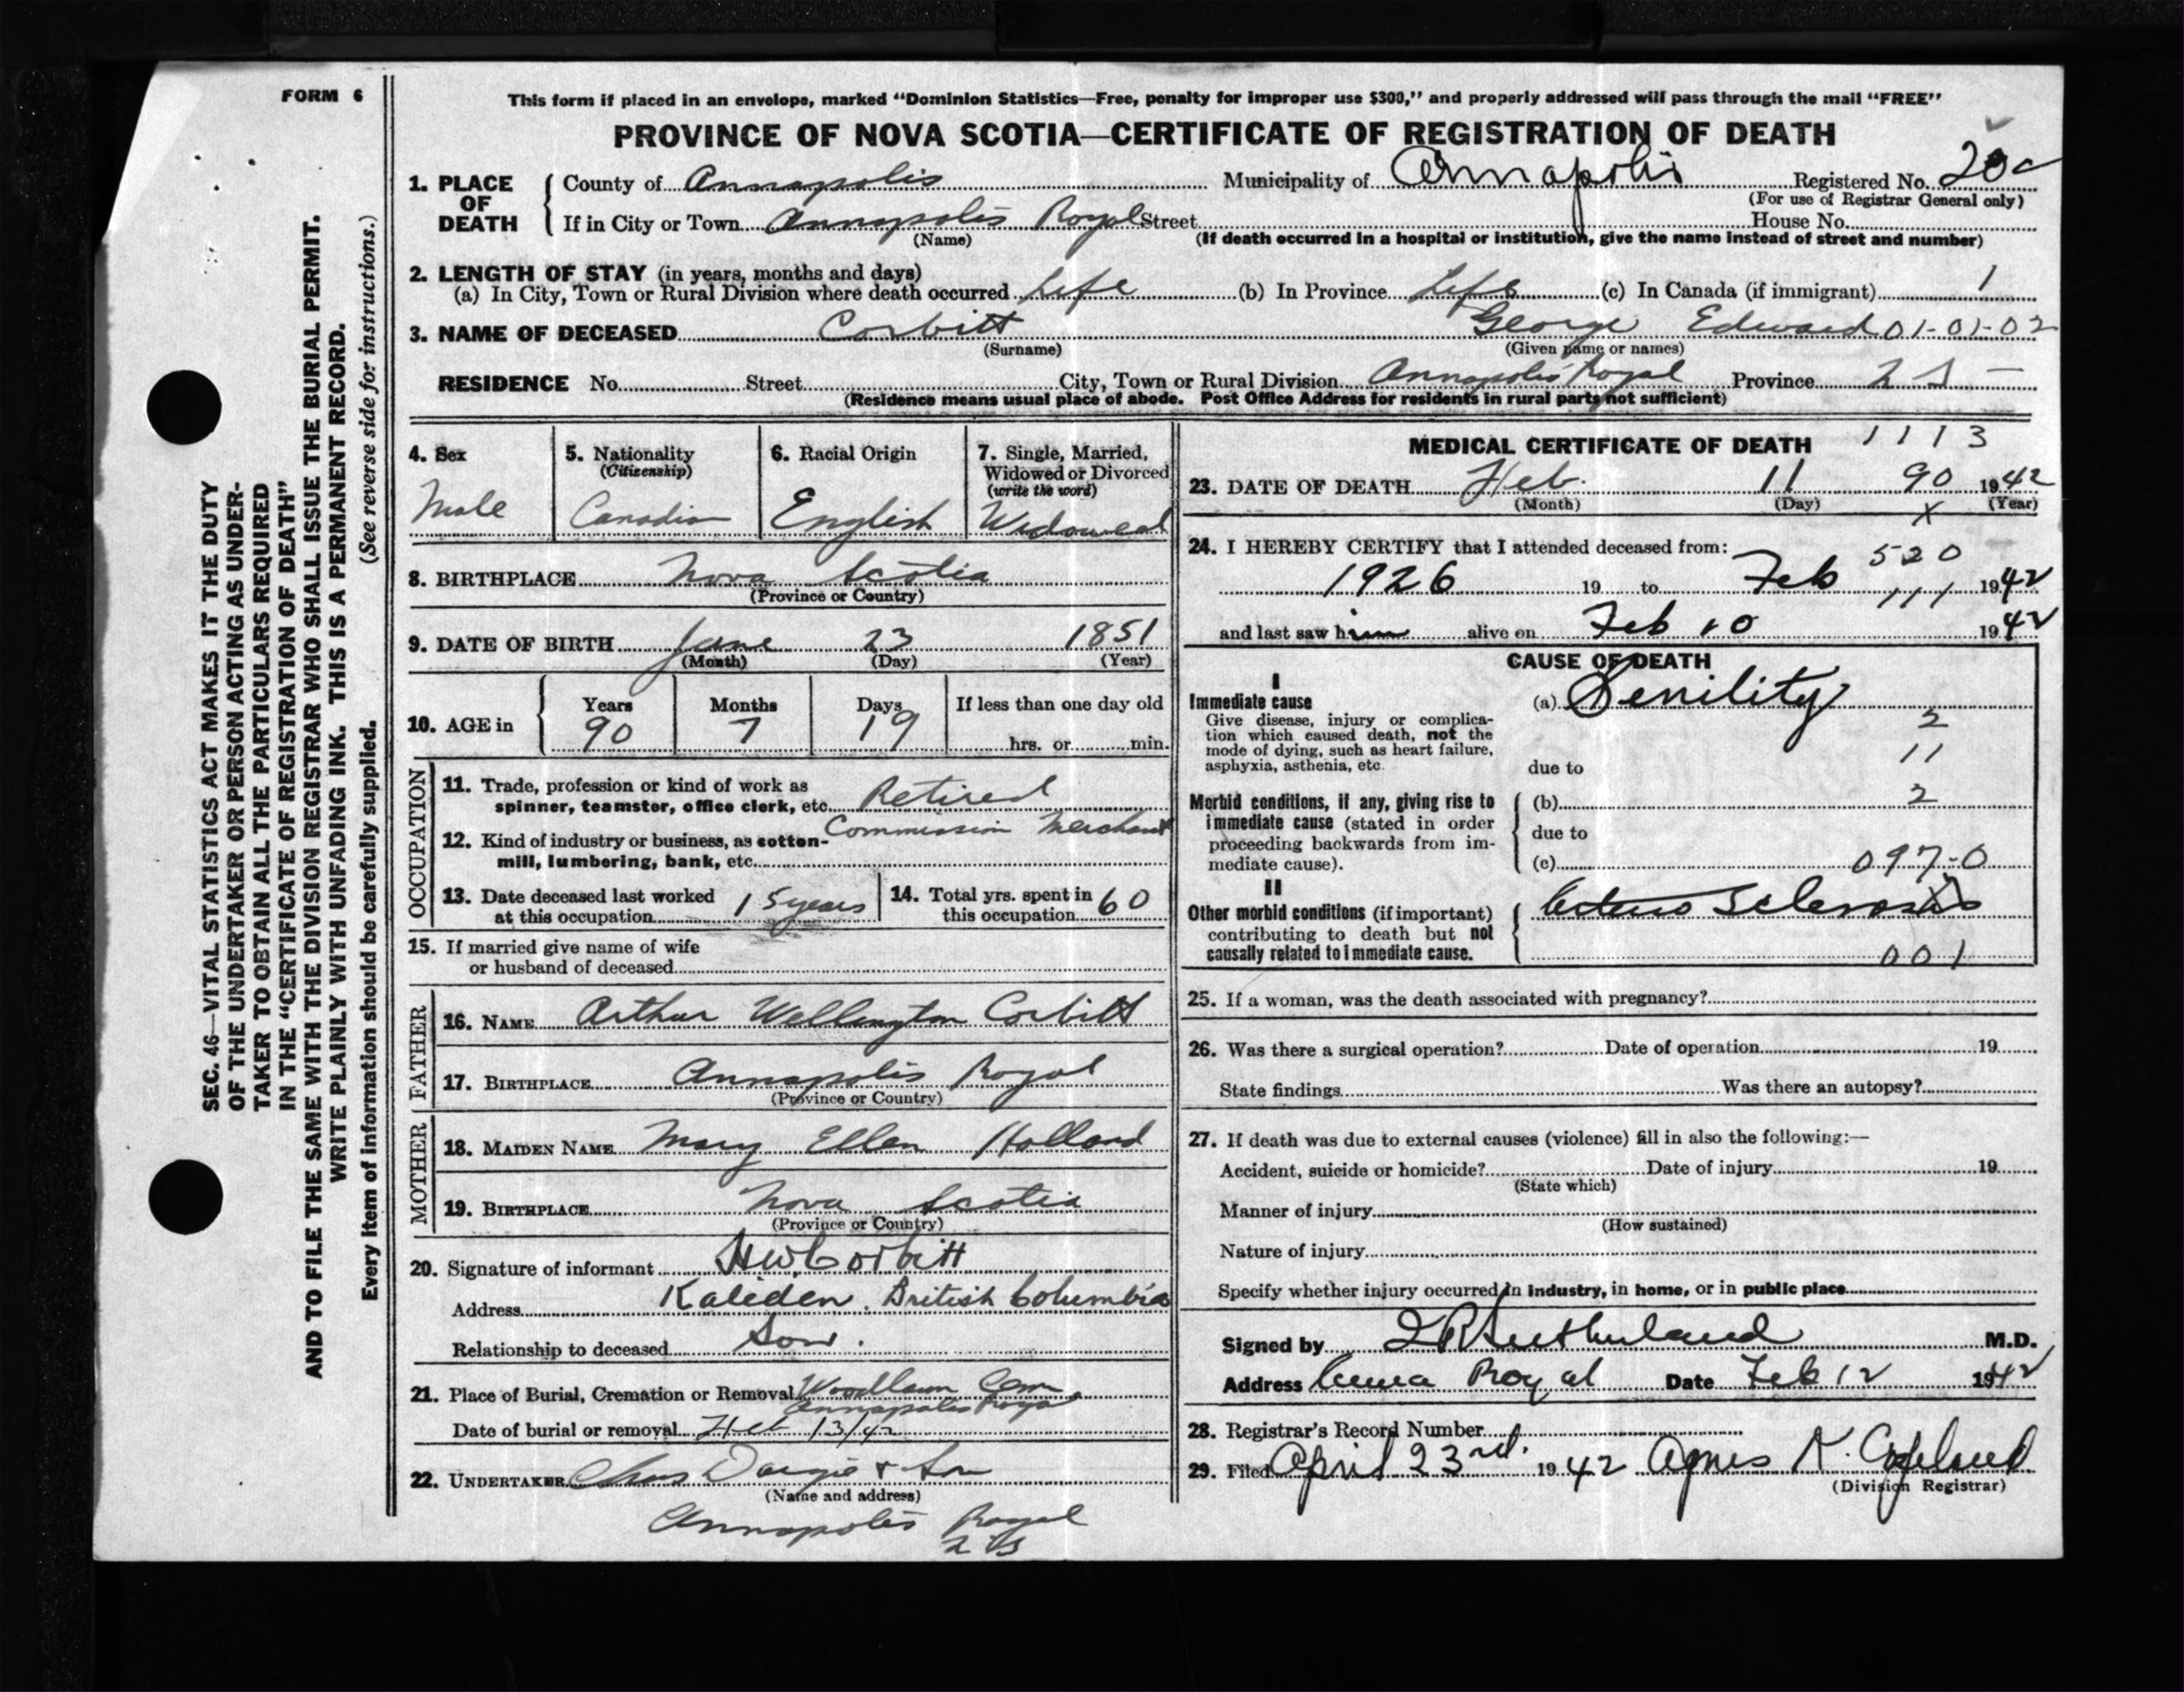 FORM 6
This form if placed in an envelope, marked "Dominion Statistics—Free, penalty for improper use $300," and properly addressed will pass through the mail "FREE"
PROVINCE OF NOVA SCOTIA—CERTIFICATE OF REGISTRATION OF DEATH
1. PLACE OF DEATH County of Annapolis Municipality of Annapolis Registered No.
(For use of Registrar General only)
If in City or Town Annapolis Royal Street House No.
(Name) (If death occurred in a hospital or institution, give the name instead of street and number)
2. LENGTH OF STAY (in years, months and days)
(a) In City, Town or Rural Division where death occurred Life (b) In Province Life (c) In Canada (if immigrant) 1
3. NAME OF DECEASED Corbitt George Edward 01-01-02
(Surname) (Given name or names)
RESIDENCE No. Street City, Town or Rural Division Annapolis Royal Province
(Residence means usual place of abode. Post Office Address for residents in rural parts not sufficient)
4. Sex
Male
5. Nationality
(Citizenship)
Canadian
6. Racial Origin
English
7. Single, Married,
Widowed or Divorced
(write the word)
Widowed
8. BIRTHPLACE Nova Scotia
(Province or Country)
9. DATE OF BIRTH June 23 1851
(Month) (Day) (Year)
10. AGE in
Years Months Days If less than one day old
90 7 19 hrs. or min.
OCCUPATION
11. Trade, profession or kind of work as
spinner, teamster, office clerk, etc. Retired
12. Kind of industry or business, as cotton- Commission Merchant
mill, lumbering, bank, etc.
13. Date deceased last worked
at this occupation 15 years
14. Total yrs. spent in
this occupation 60
15. If married give name of wife
or husband of deceased
FATHER
16. NAME Arthur Wellington Corbitt
17. BIRTHPLACE Annapolis Royal
(Province or Country)
MOTHER
18. MAIDEN NAME Mary Ellen Holland
19. BIRTHPLACE Nova Scotia
(Province or Country)
20. Signature of informant HW Corbitt
Address Kaleden, British Columbia
Relationship to deceased Son.
21. Place of Burial, Cremation or Removal Woodlawn Cem,
Annapolis Royal
Date of burial or removal Feb 13/42
22. UNDERTAKER Chas Dargie & Son
(Name and address)
Annapolis Royal
NS
MEDICAL CERTIFICATE OF DEATH 1113
23. DATE OF DEATH Feb. 11 90 1942
(Month) (Day) (Year)
X
24. I HEREBY CERTIFY that I attended deceased from:
520
1926 19 to Feb 111 1942
and last saw him alive on Feb 10 1942
CAUSE OF DEATH
I
Immediate cause (a) Senility
Give disease, injury or complica- 2
tion which caused death, not the
mode of dying, such as heart failure, 11
asphyxia, asthenia, etc. due to
Morbid conditions, if any, giving rise to (b) 2
immediate cause (stated in order due to
proceeding backwards from im-
mediate cause). (c) 097-0
II
Other morbid conditions (if important) Arterio Sclerosis
contributing to death but not
causally related to immediate cause. 001
25. If a woman, was the death associated with pregnancy?
26. Was there a surgical operation? Date of operation 19
State findings Was there an autopsy?
27. If death was due to external causes (violence) fill in also the following:—
Accident, suicide or homicide? Date of injury 19
(State which)
Manner of injury
(How sustained)
Nature of injury
Specify whether injury occurred in industry, in home, or in public place
Signed by Sutherland M.D.
Address Anna Royal Date Feb 12 1942
28. Registrar's Record Number
29. Filed April 23rd. 1942 Agnes K. Copeland
(Division Registrar)
SEC. 46—VITAL STATISTICS ACT MAKES IT THE DUTY
OF THE UNDERTAKER OR PERSON ACTING AS UNDER-
TAKER TO OBTAIN ALL THE PARTICULARS REQUIRED
IN THE "CERTIFICATE OF REGISTRATION OF DEATH"
AND TO FILE THE SAME WITH THE DIVISION REGISTRAR WHO SHALL ISSUE THE BURIAL PERMIT.
WRITE PLAINLY WITH UNFADING INK. THIS IS A PERMANENT RECORD.
Every item of information should be carefully supplied. (See reverse side for instructions.)